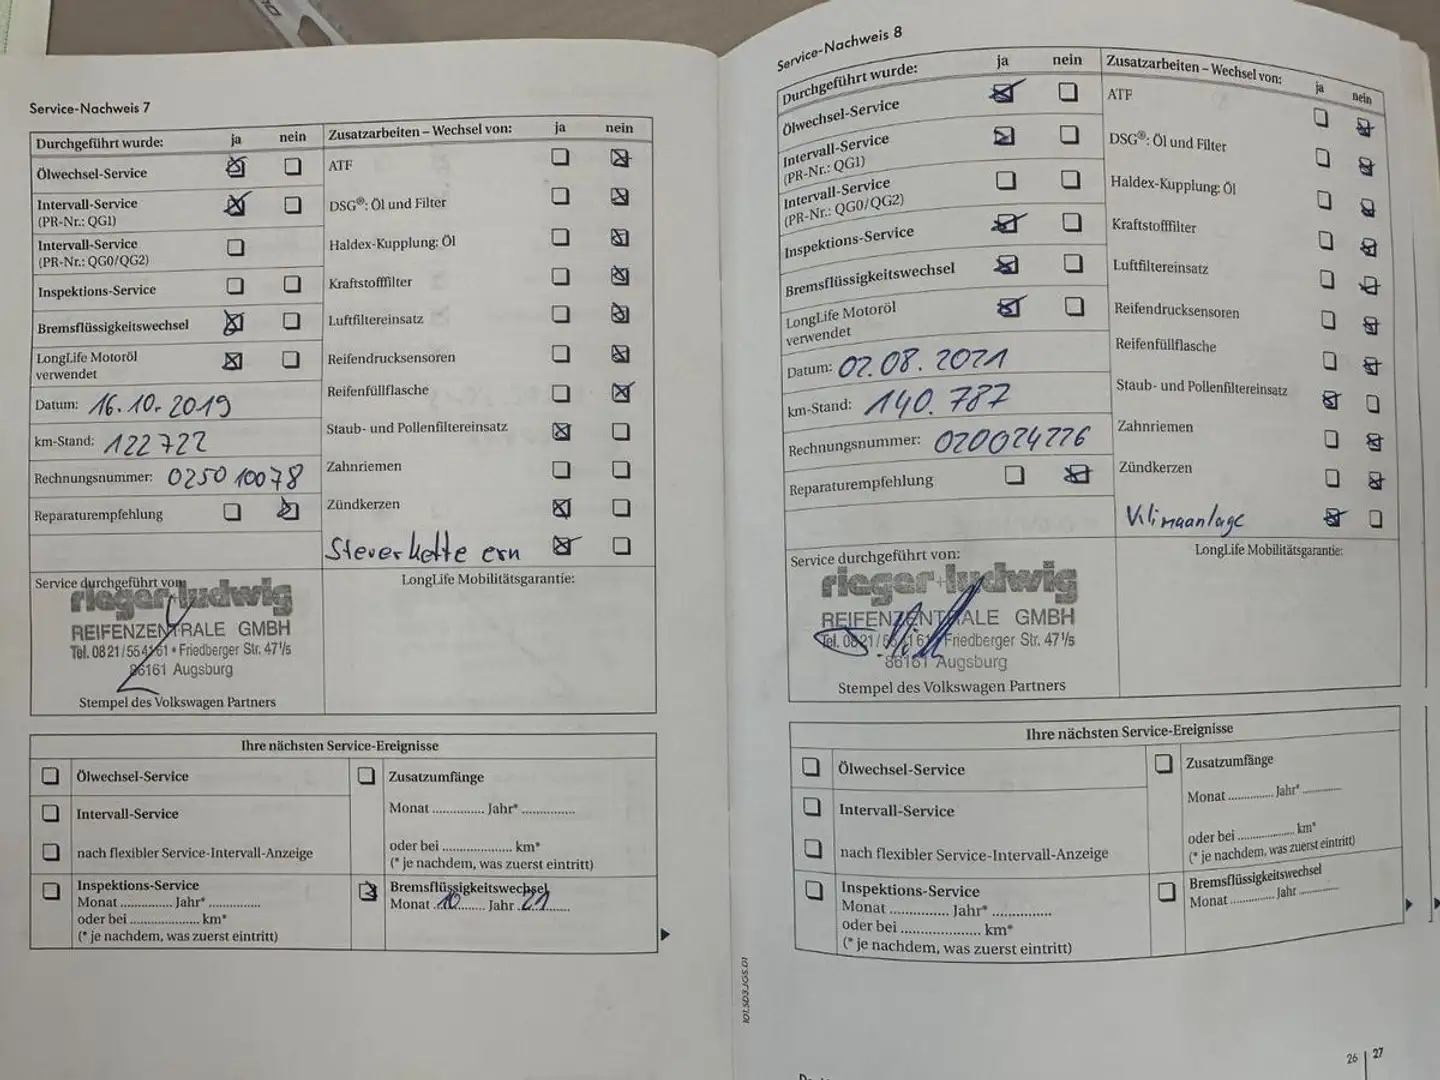 Service-Nachweis 7
Durchgeführt wurde: ja nein
Ölwechsel-Service
Intervall-Service
(PR-Nr.: QG1)
Intervall-Service
(PR-Nr.: QG0/QG2)
Inspektions-Service
Bremsflüssigkeitswechsel
LongLife Motoröl
verwendet
Datum: 16.10.2019
km-Stand: 122722
Rechnungsnummer: 025010078
Reparaturempfehlung
Zusatzarbeiten – Wechsel von: ja nein
ATF
DSG®: Öl und Filter
Haldex-Kupplung: Öl
Kraftstofffilter
Luftfiltereinsatz
Reifendrucksensoren
Reifenfüllflasche
Staub- und Pollenfiltereinsatz
Zahnriemen
Zündkerzen
Steuerkette ern
Service durchgeführt von
rieger+ludwig
REIFENZENTRALE GMBH
Tel. 0821/554161 • Friedberger Str. 47 1/5
86161 Augsburg
Stempel des Volkswagen Partners
LongLife Mobilitätsgarantie:
Ihre nächsten Service-Ereignisse
Ölwechsel-Service
Intervall-Service
nach flexibler Service-Intervall-Anzeige
Inspektions-Service
Monat ............... Jahr* ...............
oder bei .................... km*
(* je nachdem, was zuerst eintritt)
Zusatzumfänge
Monat ............... Jahr* ...............
oder bei .................... km*
(* je nachdem, was zuerst eintritt)
Bremsflüssigkeitswechsel
Monat 10 Jahr 21
Service-Nachweis 8
Durchgeführt wurde: ja nein
Ölwechsel-Service
Intervall-Service
(PR-Nr.: QG1)
Intervall-Service
(PR-Nr.: QG0/QG2)
Inspektions-Service
Bremsflüssigkeitswechsel
LongLife Motoröl
verwendet
Datum: 02.08.2021
km-Stand: 140.787
Rechnungsnummer: 020024226
Reparaturempfehlung
Zusatzarbeiten – Wechsel von: ja nein
ATF
DSG®: Öl und Filter
Haldex-Kupplung: Öl
Kraftstofffilter
Luftfiltereinsatz
Reifendrucksensoren
Reifenfüllflasche
Staub- und Pollenfiltereinsatz
Zahnriemen
Zündkerzen
Klimaanlage
Service durchgeführt von:
rieger+ludwig
REIFENZENTRALE GMBH
Tel. 0821/554161 • Friedberger Str. 47 1/5
86161 Augsburg
Stempel des Volkswagen Partners
LongLife Mobilitätsgarantie:
Ihre nächsten Service-Ereignisse
Ölwechsel-Service
Intervall-Service
nach flexibler Service-Intervall-Anzeige
Inspektions-Service
Monat ............... Jahr* ...............
oder bei .................... km*
(* je nachdem, was zuerst eintritt)
Zusatzumfänge
Monat ............... Jahr* ...............
oder bei .................... km*
(* je nachdem, was zuerst eintritt)
Bremsflüssigkeitswechsel
Monat ............... Jahr ...............
26 | 27